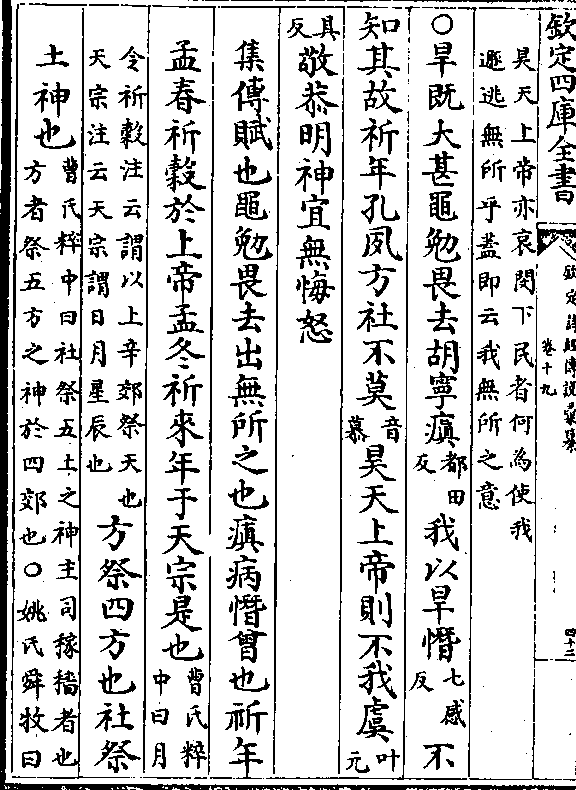 欽定四庫全書
欽定詩經傳說彙纂
卷十九
四十三
昊天上帝亦哀閔下民者何為使我
遯逃無所乎蓋即云我無所之意
○旱既大甚黽勉畏去胡寧瘨都田反我以旱憯七感反不
知其故祈年孔夙方社不莫音慕昊天上帝則不我虞叶元
具反敬恭明神宜無悔怒
集傳賦也黽勉畏去出無所之也瘨病憯曾也祈年
孟春祈穀於上帝孟冬祈來年于天宗是也曹氏粹中曰月
令祈穀注云謂以上辛郊祭天也天宗注云天宗謂日月星辰也方祭四方也社祭
土神也曹氏粹中曰社祭五土之神主司稼穡者也方者祭五方之神於四郊也○姚氏舜牧曰